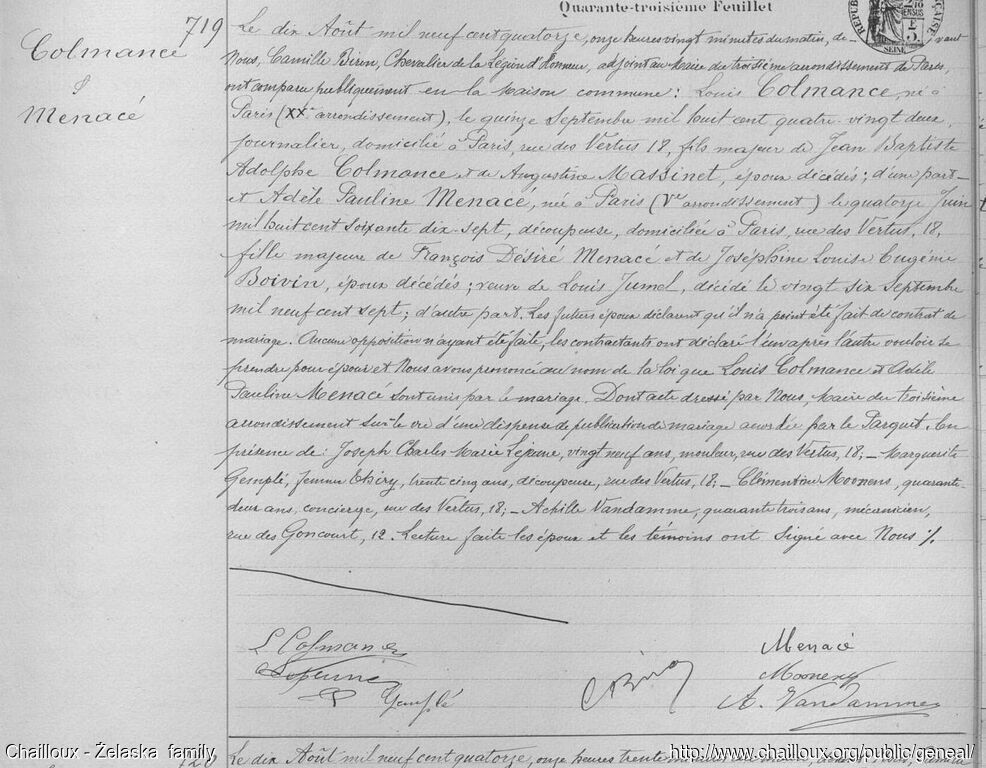 Quarante-troisième Feuillet
719
Colmance
&
Menacé
Le dix Août mil neuf cent quatorze, onze heures vingt minutes du matin, devant
Nous, Camille Biron, Chevalier de la Légion d'Honneur, adjoint au Maire du troisième arrondissement de Paris,
ont comparu publiquement en la maison commune : Louis Colmance, né à
Paris (XXe arrondissement), le quinze Septembre mil huit cent quatre-vingt deux,
journalier, domicilié à Paris, rue des Vertus 18, fils majeur de Jean Baptiste
Adolphe Colmance et de Augustine Massinet, époux décédés ; d'une part –
et Adèle Pauline Menacé, née à Paris (Ve arrondissement) le quatorze Juin
mil huit cent soixante dix-sept, découpeuse, domiciliée à Paris, rue des Vertus, 18,
fille majeure de François Désiré Menacé et de Joséphine Louise Eugénie
Boivin, époux décédés ; veuve de Louis Jumel, décédé le vingt six Septembre
mil neuf cent sept ; d'autre part. Les futurs époux déclarent qu'il n'a point été fait de contrat de
mariage. Aucune opposition n'ayant été faite, les contractants ont déclaré l'un après l'autre vouloir se
prendre pour époux et Nous avons prononcé au nom de la loi que Louis Colmance et Adèle
Pauline Menacé sont unis par le mariage. Dont acte dressé par Nous, Maire du troisième
arrondissement sur le vu d'une dispense de publication de mariage accordée par le Parquet. En
présence de : Joseph Charles Marie Lejeune, vingt neuf ans, mouleur, rue des Vertus, 18 ; – Marguerite
Gemplé, femme Thiry, trente cinq ans, découpeuse, rue des Vertus, 18 ; – Clémentine Moonens, quarante-
deux ans, concierge, rue des Vertus, 18 ; – Achille Vandamme, quarante trois ans, mécanicien,
rue des Goncourt, 12. Lecture faite les époux et les témoins ont signé avec Nous ./.
L Colmance
Menacé
Lejeune
Moonens
Gemplé
CBiron
A. Vandamme
720
Le dix Août mil neuf cent quatorze, onze heures trente
Chailloux - Żelaska family
http://www.chailloux.org/public/geneal/